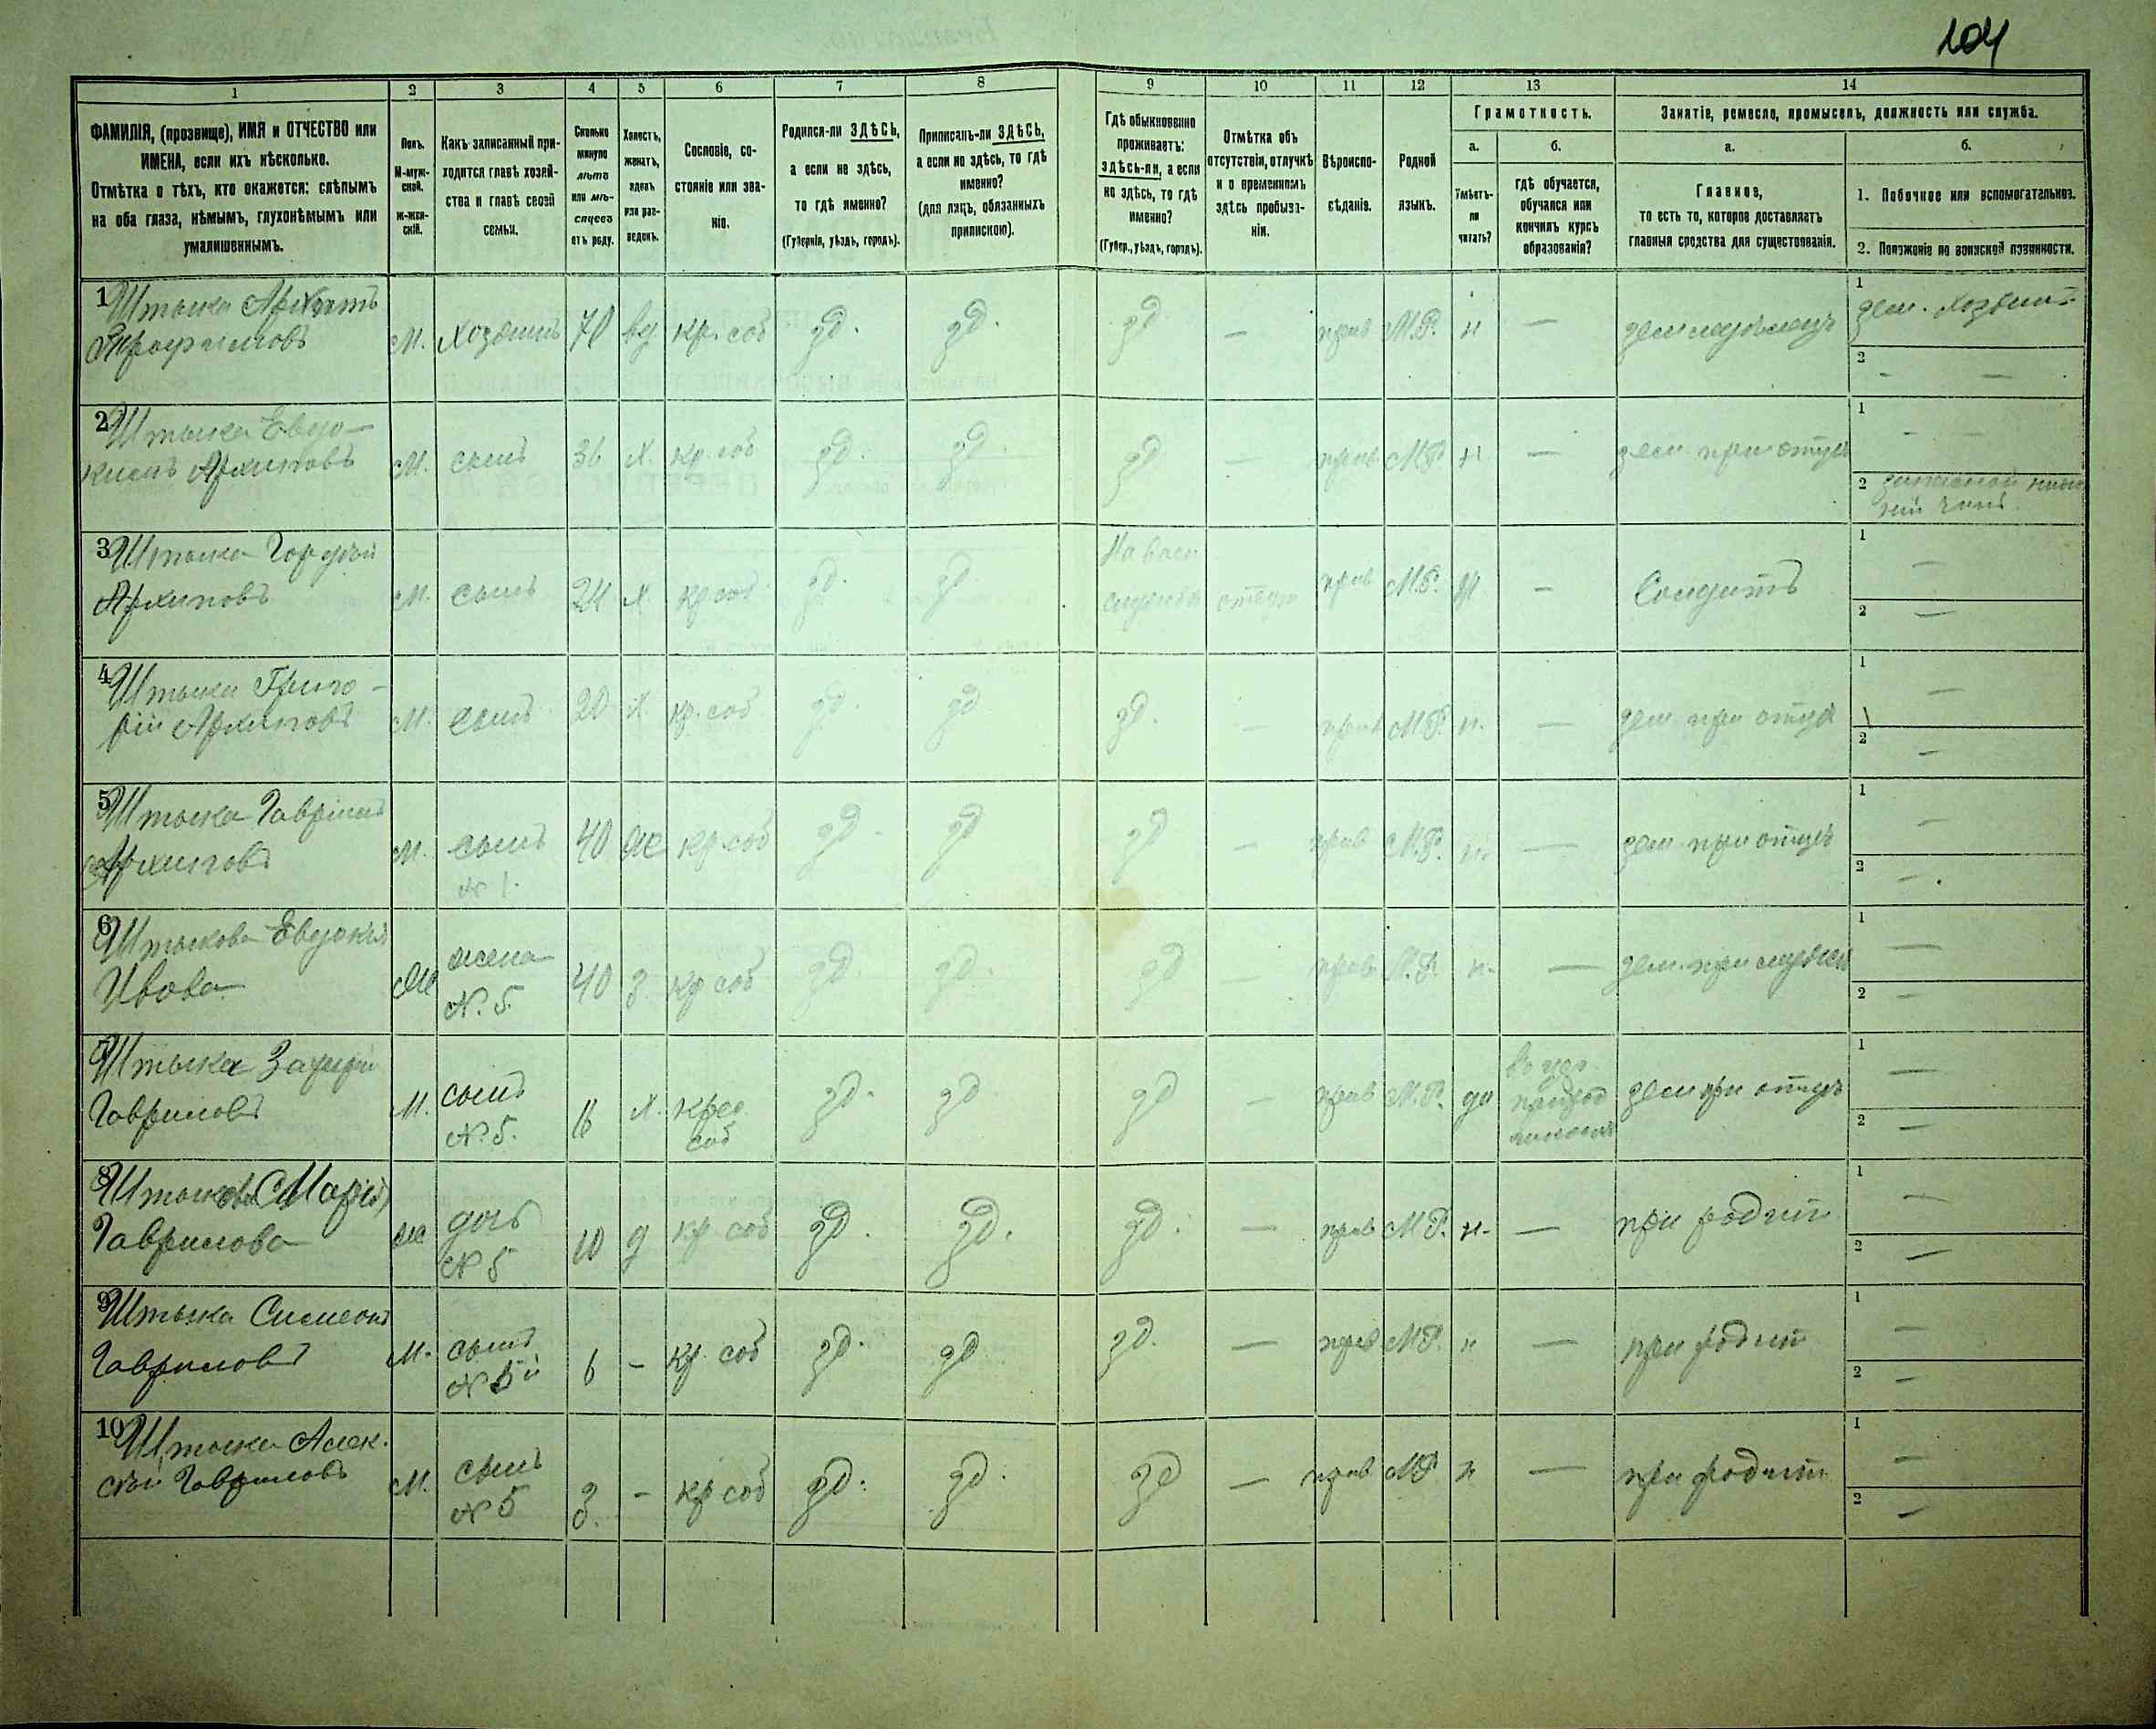 104
1 2 3 4 5 6 7 8 9 10 11 12 13 14
ФАМИЛІЯ, (прозвище), ИМЯ и ОТЧЕСТВО или
ИМЕНА, если ихъ нѣсколько.
Отмѣтка о тѣхъ, кто окажется: слѣпымъ
на оба глаза, нѣмымъ, глухонѣмымъ или
умалишеннымъ.
Полъ.
М-муж-
ской.
Ж-жен-
скій.
Какъ записанный при-
ходится главѣ хозяй-
ства и главѣ своей
семьи.
Сколько
минуло
лѣтъ
или мѣ-
сяцевъ
отъ роду.
Холостъ,
женатъ,
вдовъ
или раз-
веденъ.
Сословіе, со-
стояніе или зва-
ніе.
Родился-ли ЗДѢСЬ,
а если не здѣсь,
то гдѣ именно?
(Губернія, уѣздъ, городъ).
Приписанъ-ли ЗДѢСЬ,
а если не здѣсь, то гдѣ
именно?
(для лицъ, обязанныхъ
припискою).
Гдѣ обыкновенно
проживаетъ:
ЗДѢСЬ-ли, а если
не здѣсь, то гдѣ
именно?
(Губер., уѣздъ, городъ).
Отмѣтка объ
отсутствіи, отлучкѣ
и о временномъ
здѣсь пребыва-
ніи.
Вѣроиспо-
вѣданіе.
Родной
языкъ.
Грамотность.
а.
Умѣетъ-
ли
читать?
б.
гдѣ обучается,
обучался или
кончилъ курсъ
образованія?
Занятіе, ремесло, промыселъ, должность или служба.
а.
Главное,
то есть то, которое доставляетъ
главныя средства для существованія.
б.
1. Побочное или вспомогательное.
2. Положеніе по воинской повинности.
1 Штыка Архипъ
М. Хозяинъ 70 вд кр. соб зд. зд. зд — прав М.Р. н — земледѣлецъ
1
2 — —
2 Штыка Евдо-
кимъ Архиповъ М. сынъ 36 Х. кр. соб зд. зд. зд — прав М.Р. н — зем. при отцѣ
1 — —
2
3 Штыка Гордѣй
Архиповъ М. сынъ 24 Х кр соб зд. зд. На воен службѣ прав М.Р. — Солдатъ
1 —
2 —
4 Штыка Григо-
рій Архиповъ М. сынъ 20 Х кр. соб зд. зд зд. — прав М.Р. н. — зем при отцѣ
1 —
2 —
5 Штыка Гавріилъ
Архиповъ М. сынъ № 1. 40 Ж кр соб зд. зд зд — прав М.Р. н. — зем при отцѣ
1 —
2 —
6 Штыкова Евдокія
Ивова Ж жена № 5. 40 З. кр соб зд зд. зд — прав М.Р. н. — зем. при мужѣ
1 —
2 —
7 Штыка
Гавриловъ М. сынъ № 5. 16 Х. крес соб зд. зд зд — прав М.Р. да зем при отцѣ
1 —
2 —
8 Штыкова Марія
Гаврилова Ж дочь № 5 10 д кр соб зд. зд. зд. — прав М.Р. н. — при родит
1 —
2 —
9 Штыка Симеонъ
Гавриловъ М. сынъ № 5й 6 — кр. соб зд. зд зд. — прав М.Р. н — при родит
1 —
2 —
10 Штыка Алек-
сѣй Гавриловъ М. сынъ № 5 3 — кр соб зд. зд. зд — прав М.Р. н — при родит.
1 —
2 —